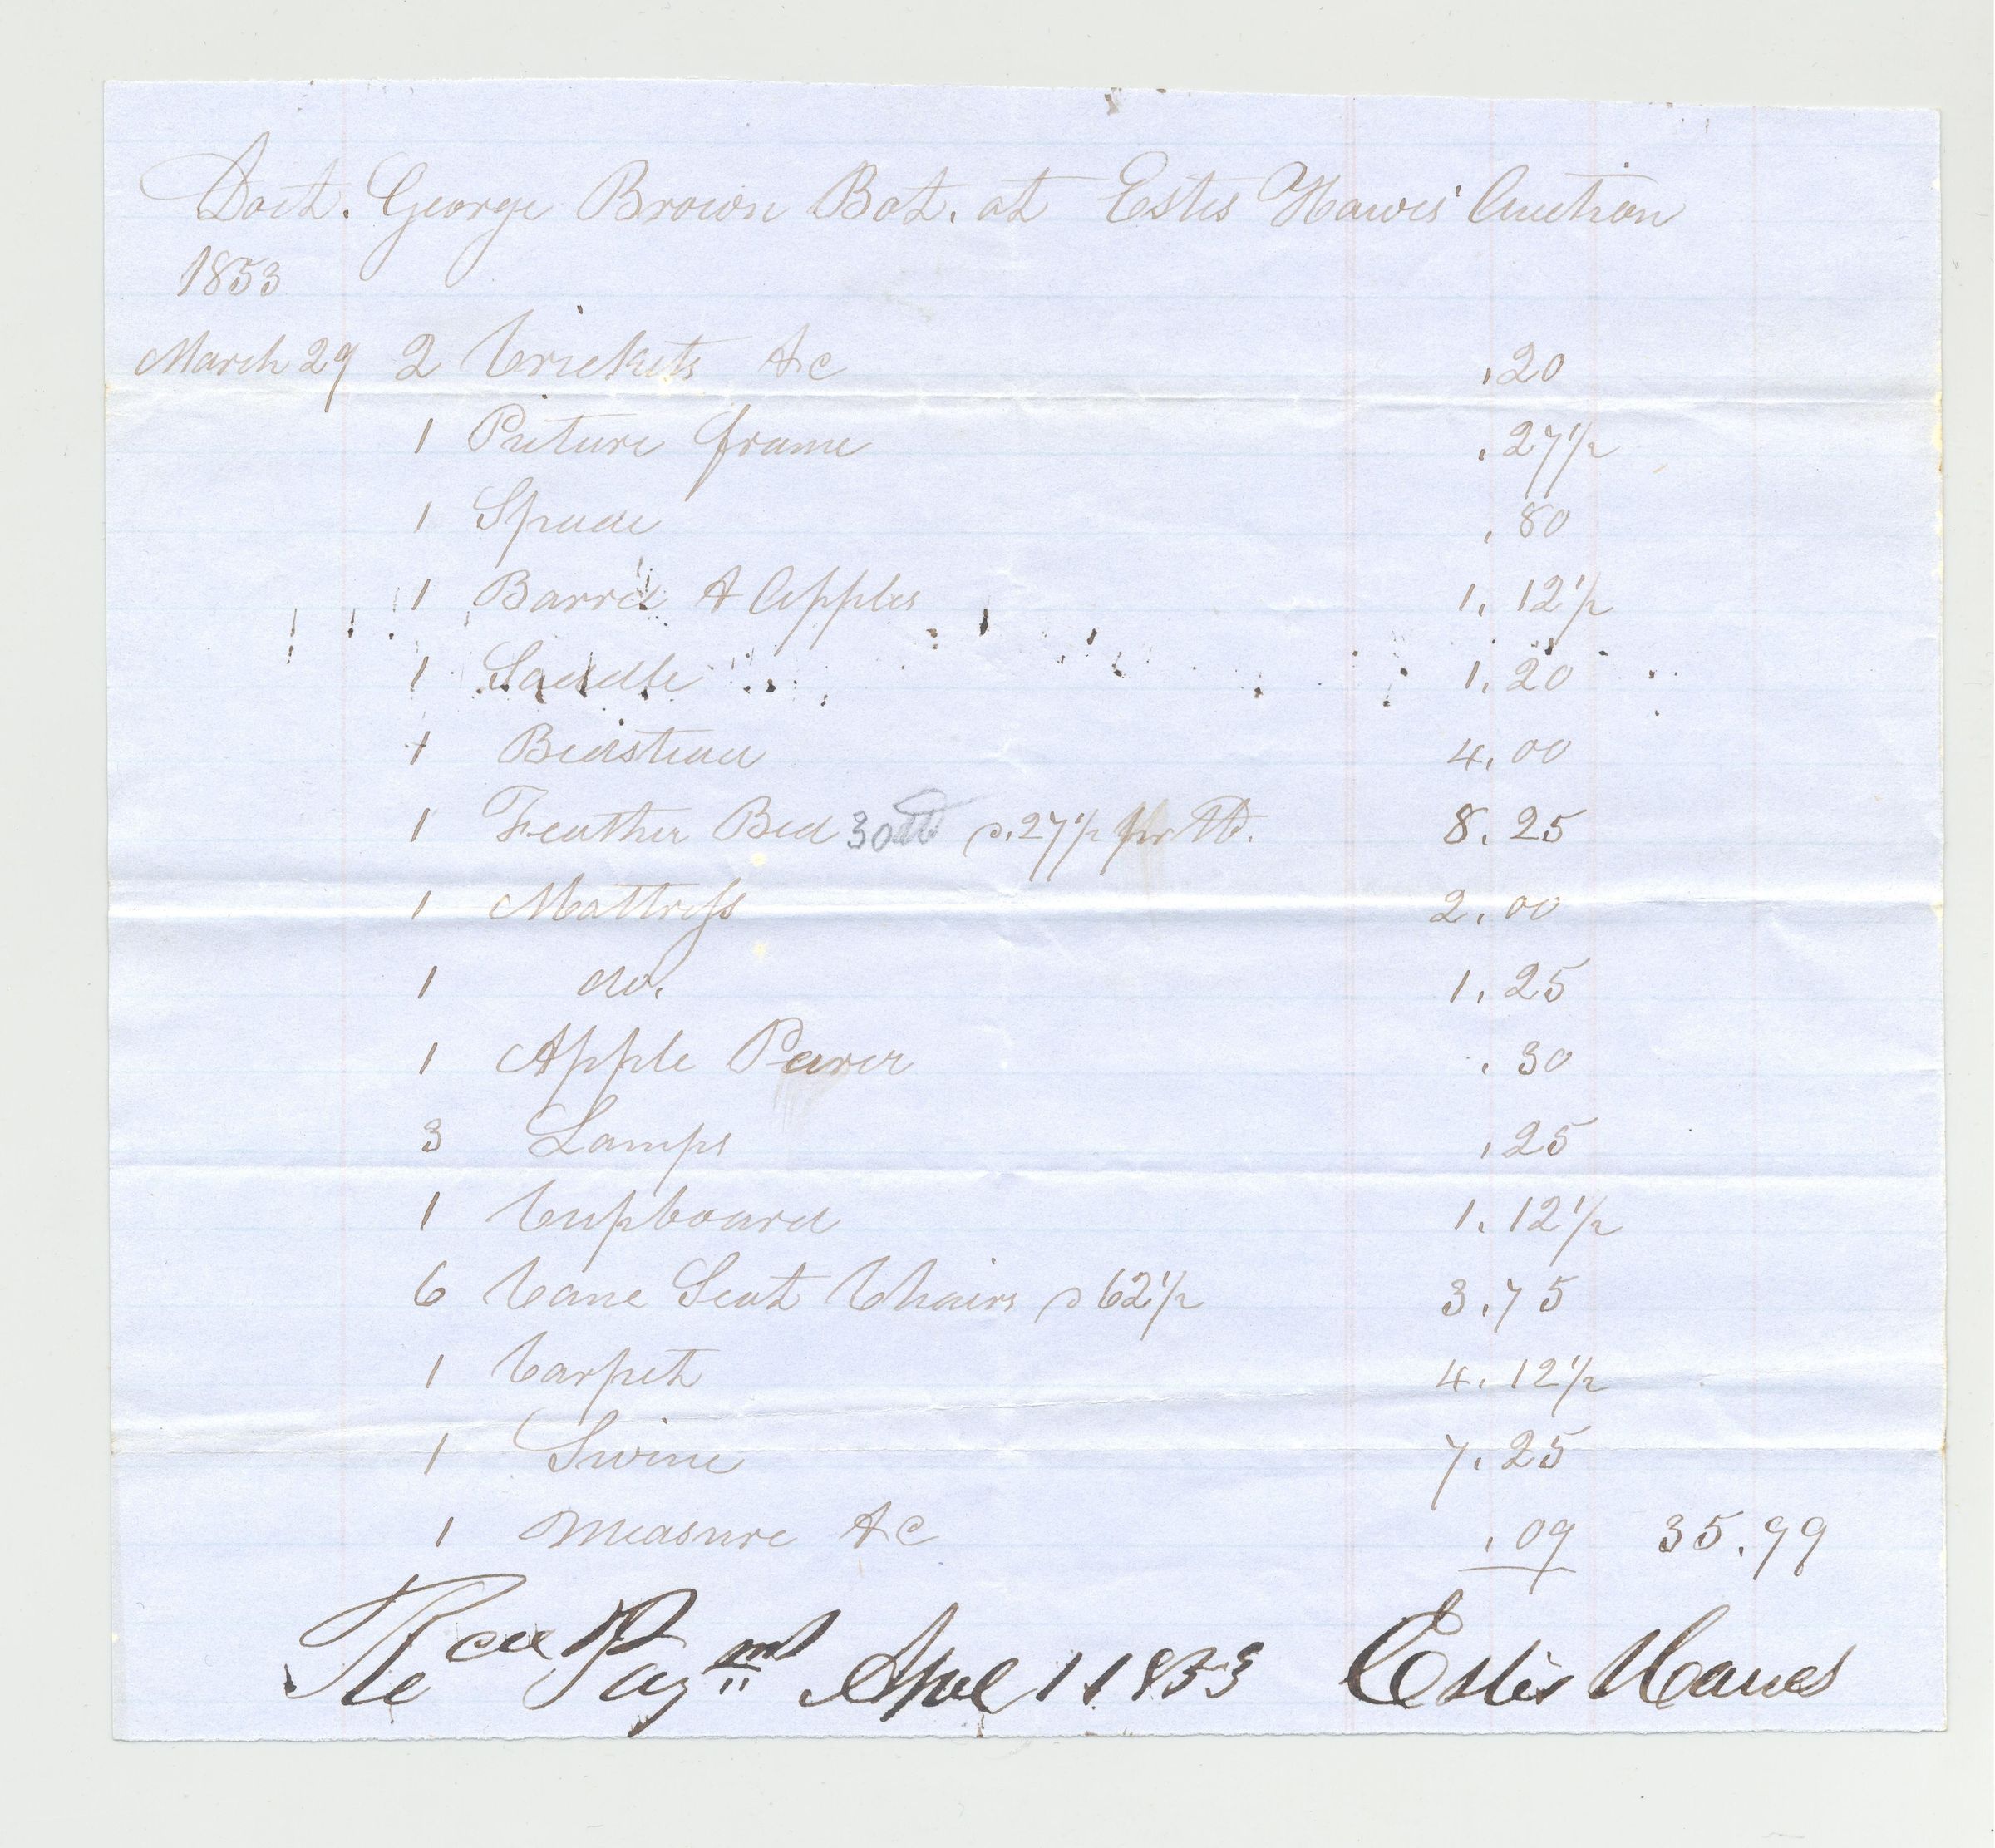 Doct. George Brown Bot. at Estes Hawes' Auction
1853
March 29 2 Crickets &c .20
1 Picture frame .27 1/2
1 Spade .80
1 Barrel & Apples 1.12 1/2
1 Saddle 1.20
1 Bedstead 4.00
1 Feather Bed 30 lb @.27 1/2 pr lb. 8.25
1 Mattress 2.00
1 do. 1.25
1 Apple Parer .30
3 Lamps .25
1 Cupboard 1.12 1/2
6 Cane Seat Chairs @ 62 1/2 3.75
1 Carpet 4.12 1/2
1 Swine 7.25
1 Measure &c .09 35.99
Recd Paymnt April 1 1853 Estes Hawes